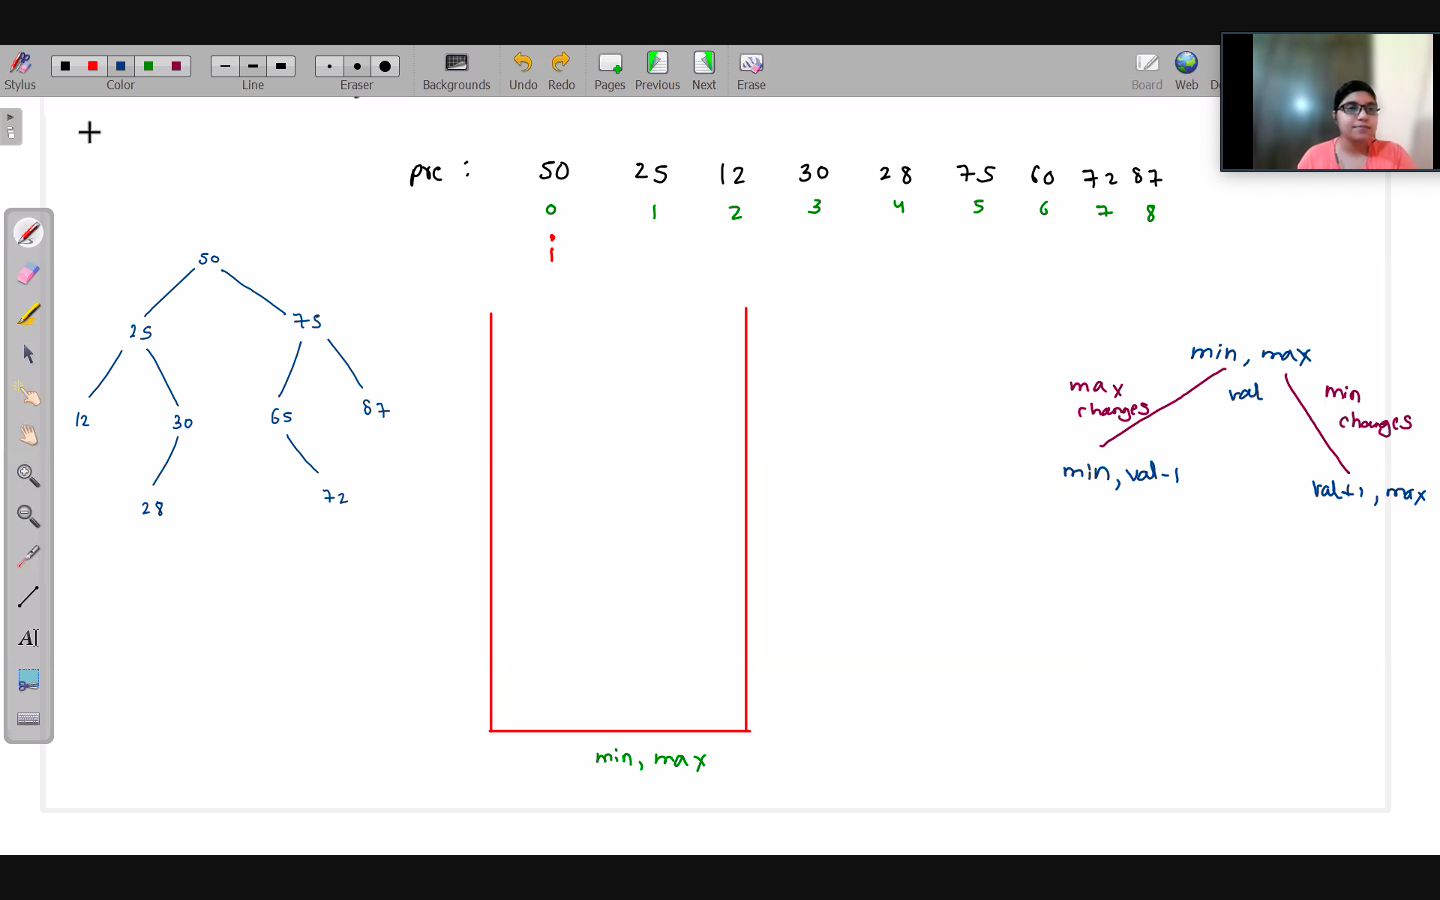 Stylus Color Line Eraser Backgrounds Undo Redo Pages Previous Next Erase Board Web
pre : 50 25 12 30 28 75 60 72 87
0 1 2 3 4 5 6 7 8
i
50
25 75
12 30 65 87
28 72
min, max
val
max changes
min changes
min, val-1
val+1, max
min, max
AI